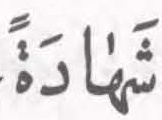 شَهٰادَةً